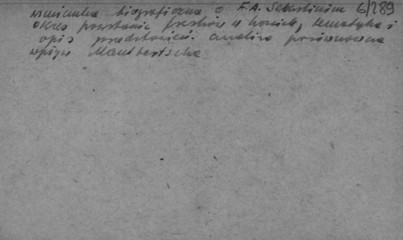 wzmianka biograficzna o F.A. Sebastinim 6/289
okres powstania fresków w kościele, tematyka i
opis przedstawień. analiza porównawcza
wpływ Maulbertscha